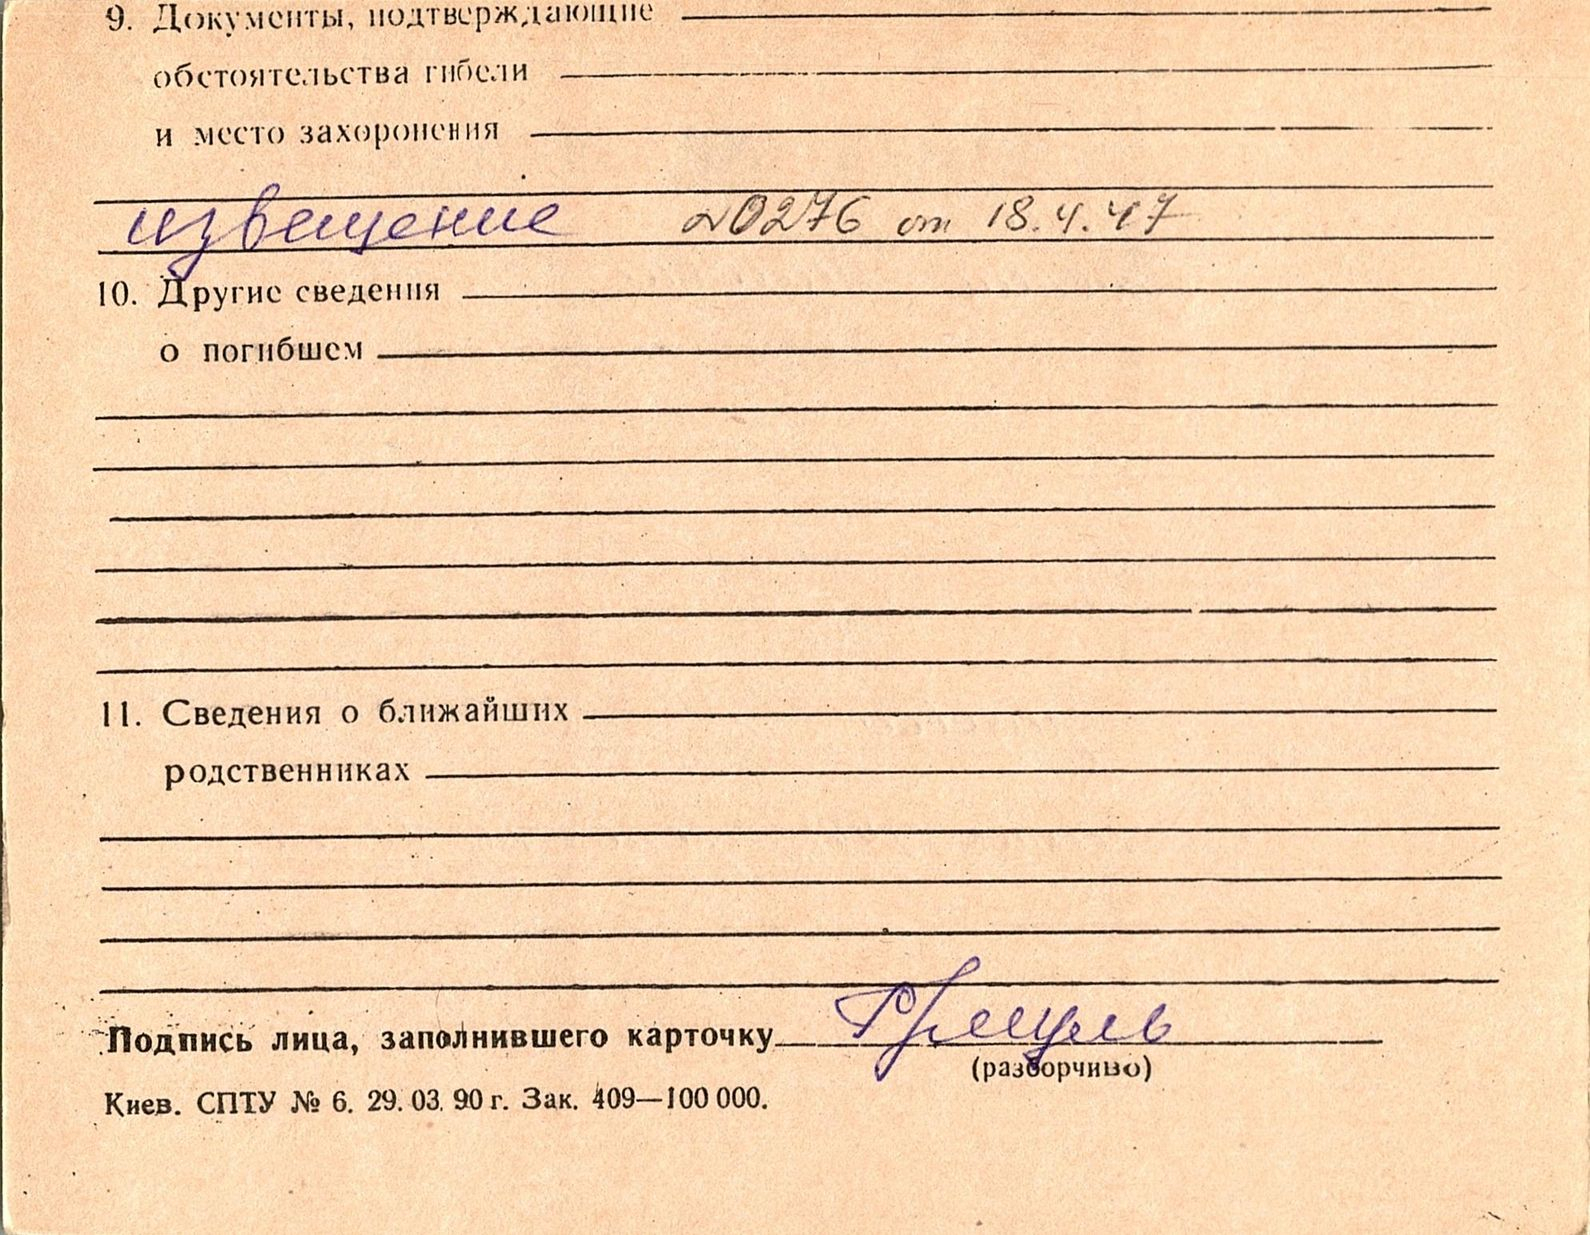 9. Документы, подтверждающие
обстоятельства гибели
и место захоронения
извещение 0276 от 18.4.47
10. Другие сведения
о погибшем
11. Сведения о ближайших
родственниках
Подпись лица, заполнившего карточку
(разборчиво)
Киев. СПТУ № 6. 29.03.90 г. Зак. 409—100 000.